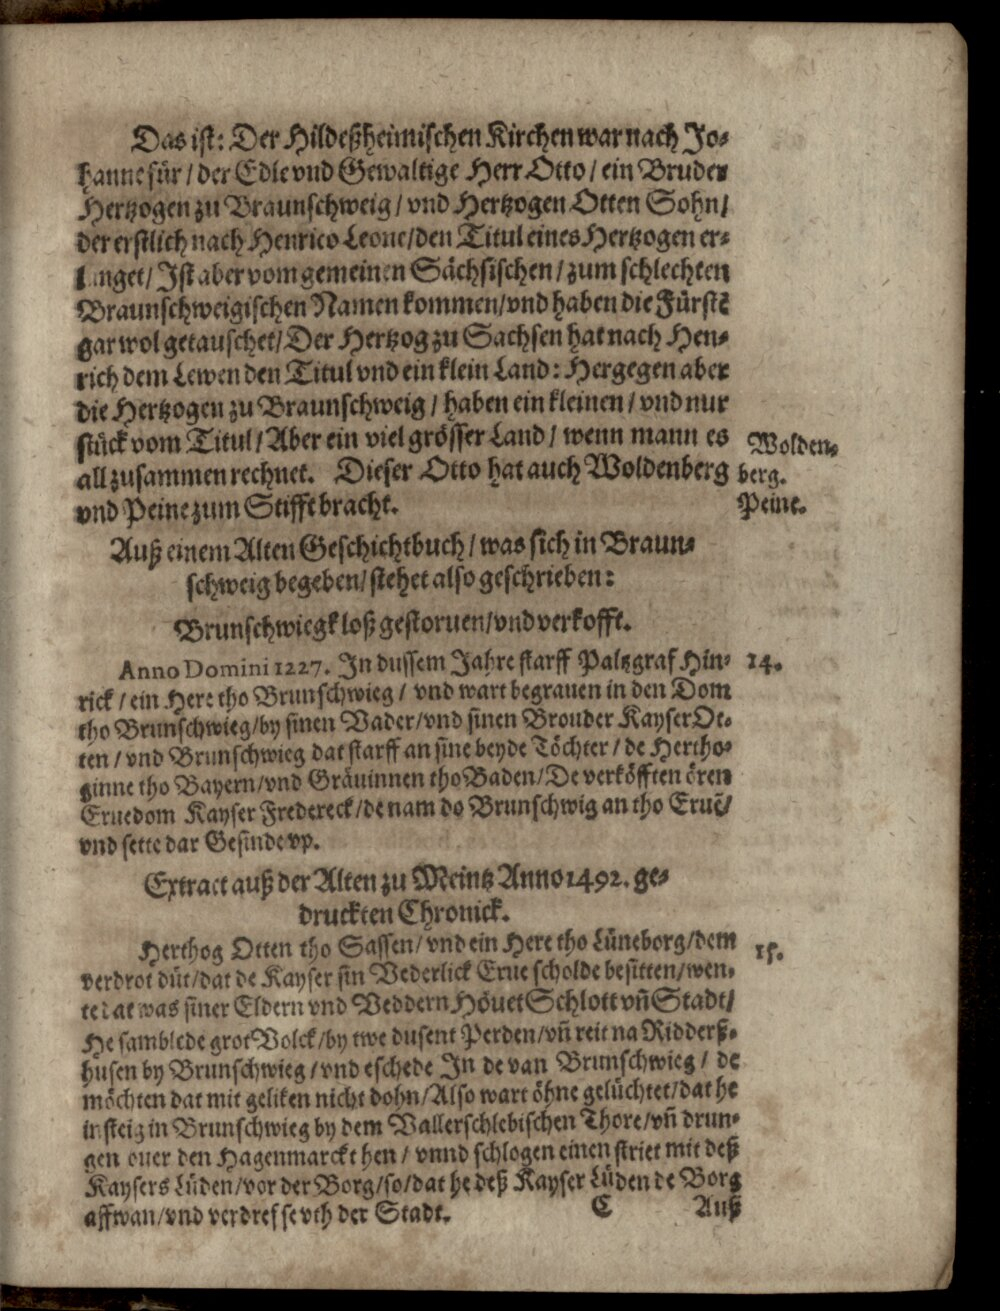 Das ist: Der Hildeßheimischen Kirchen war nach Jo-
hanne für / der Edle vnd Gewaltige Herr Otto / ein Bruder
Hertzogen zu Braunschweig / vnd Hertzogen Otten Sohn /
der erstlich nach Henrico Leone / den Titul eines Hertzogen er-
langet / Ist aber vom gemeinen Sächsischen / zum schlechten
Braunschweigischen Namen kommen / vnd haben die Fürstē
gar wol getauschet / Der Hertzog zu Sachsen hat nach Hen-
rich dem Lewen den Titul vnd ein klein Land: Hergegen aber
die Hertzogen zu Braunschweig / haben ein kleinen / vnd nur
stück vom Titul / Aber ein viel grösser Land / wenn mann es
all zusammen rechnet. Dieser Otto hat auch Woldenberg
vnd Peine zum Stifft bracht.
Wolden-
berg.
Peine.
Auß einem Alten Geschichtbuch / was sich in Braun-
schweig begeben / stehet also geschrieben:
Brunschwiegk loß gestoruen / vnd verkofft.
14.
Anno Domini 1227. In dussem Jahre starff Paltzgraf Hin-
rick / ein Here tho Brunschwieg / vnd wart begrauen in den Dom
tho Brunschwieg / by sinen Vader / vnd sinen Brouder Kayser Ot-
ten / vnd Brunschwieg dat starff an sine beyde Töchter / de Hertho-
ginne tho Bayern / vnd Gräuinnen tho Baden / De verköfften ören
Eruedom Kayser Fredereck / de nam do Brunschwig an tho Eruē /
vnd sette dar Gesinde vp.
Extract auß der Alten zu Meintz Anno 1492. ge-
druckten Chronick.
15.
Herthog Otten tho Sassen / vnd ein Here tho Lüneborg / dem
verdrot düt / dat de Kayser sin Vederlick Erue scholde besitten / wen-
te dat was siner Eldern vnd Veddern Höuet Schlott vn̄ Stadt /
He samblede grot Volck / by twe dusent Perden / vn̄ reit na Ridderß-
husen by Brunschwieg / vnd eschede In de van Brunschwieg / de
möchten dat mit geliken nicht dohn / Also wart öhne gelüchtet / dat he
insteig in Brunschwieg by dem Vallerschlebischen Thore / vn̄ drun-
gen ouer den Hagenmarckt hen / vnnd schlogen einen striet mit deß
Kaysers Lüden / vor der Borg / so / dat he deß Kayser Lüden de Borg
affwan / vnd verdref se vth der Stadt.
C Auß